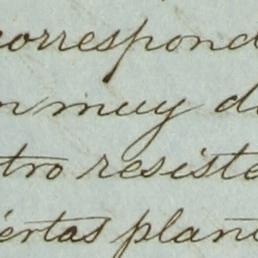 correspond
n muy d
tro resiste
iertas plan